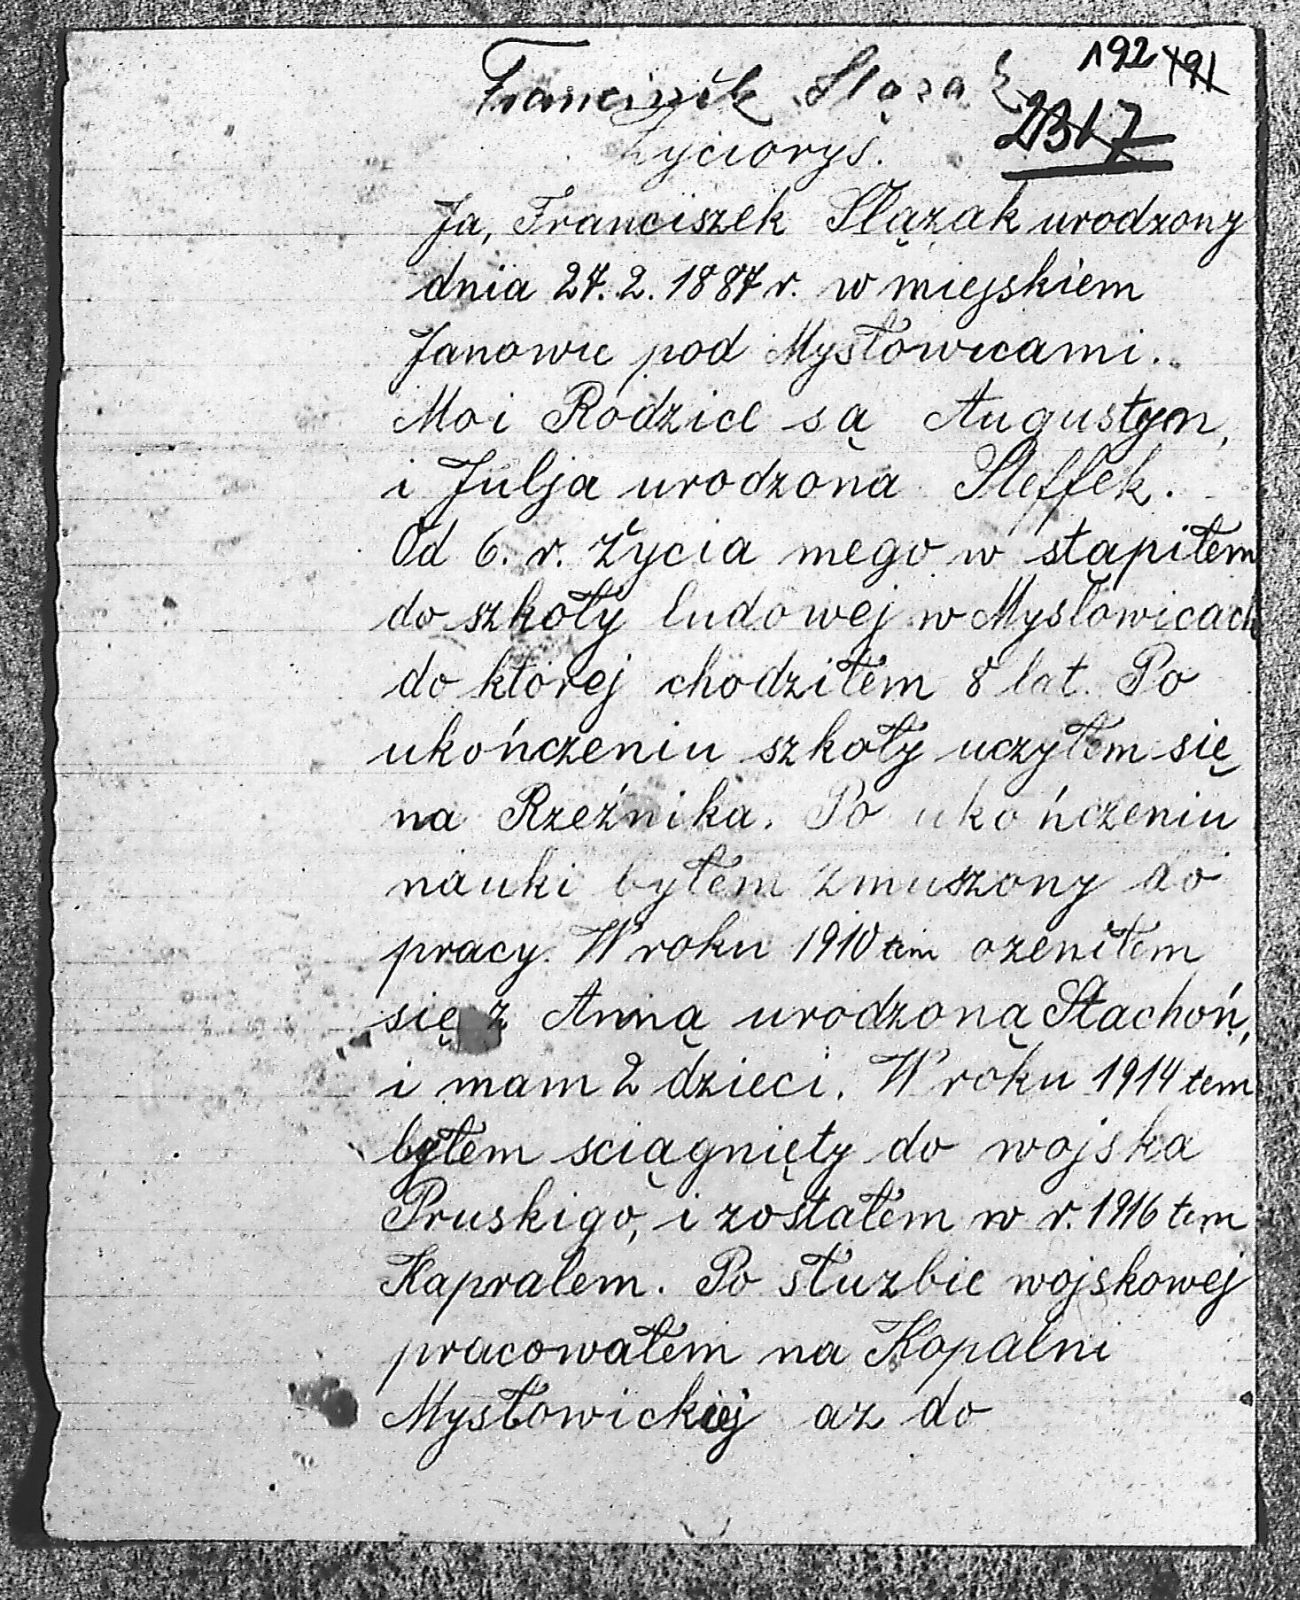 192 191
Franciszek Slązak
2317
Życiorys.
Ja, Franciszek Slązak urodzony
dnia 27. 2. 1887 r. w miejskiem
Janowie pod Mysłowicami.
Moi Rodzice są Augustyn,
i Julja urodzona Steffek.
Od 6. r. życia mego w stąpiłem
do szkoły ludowej w Mysłowicach
do ktorej chodziłem 8 lat. Po
ukończeniu szkoły uczyłem się
na Rzeźnika. Po ukończeniu
nauki byłem zmuszony do
pracy. W roku 1910 tim ozeniłem
się z Anną urodzoną Stachoń,
i mam 2 dzieci. W roku 1914 tem
byłem sciągnięty do wojska
Pruskigo, i zostałem w r. 1916 tem
Kapralem. Po stuzbie wojskowej
pracowałem na Kopalni
Mysłowickiej az do